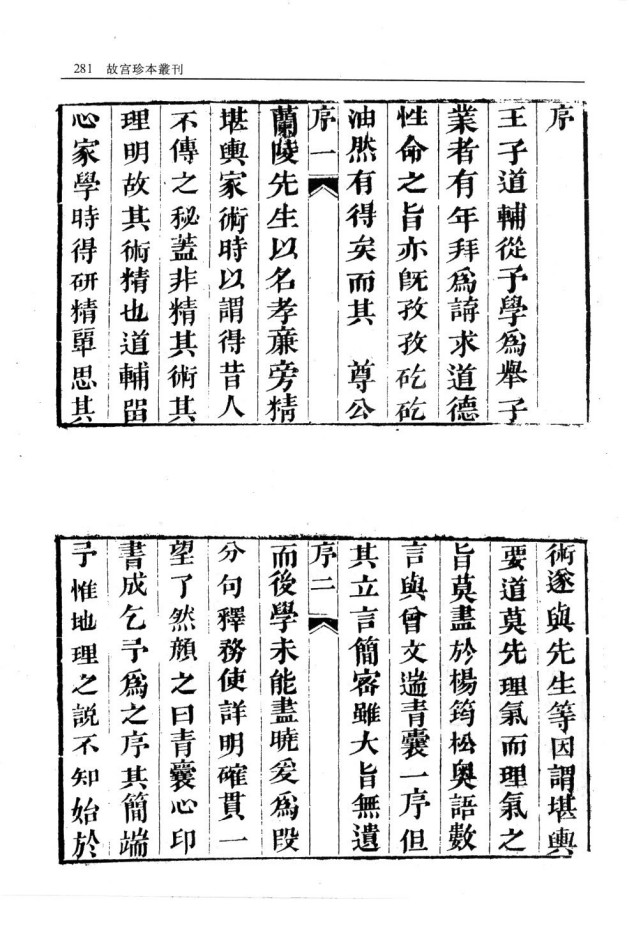 281 故宮珍本叢刊
序
王子道輔從予學爲舉子
業者有年拜爲講求道德
性命之旨亦旣孜孜矻矻
油然有得矣而其 尊公
序 一
蘭陵先生以名孝亷旁精
堪輿家術時以謂得昔人
不傳之秘蓋非精其術其
理明故其術精也道輔畱
心家學時得硏精單思其
術遂與先生等因謂堪輿
要道莫先理氣而理氣之
旨莫盡於楊筠松奥語數
言與曾文遄青囊一序但
其立言簡宻雖大旨無遺
序 二
而後學未能盡曉爰爲段
分句釋務使詳明確貫一
望了然顏之曰青囊心印
書成乞予爲之序其簡端
予惟地理之說不知始於